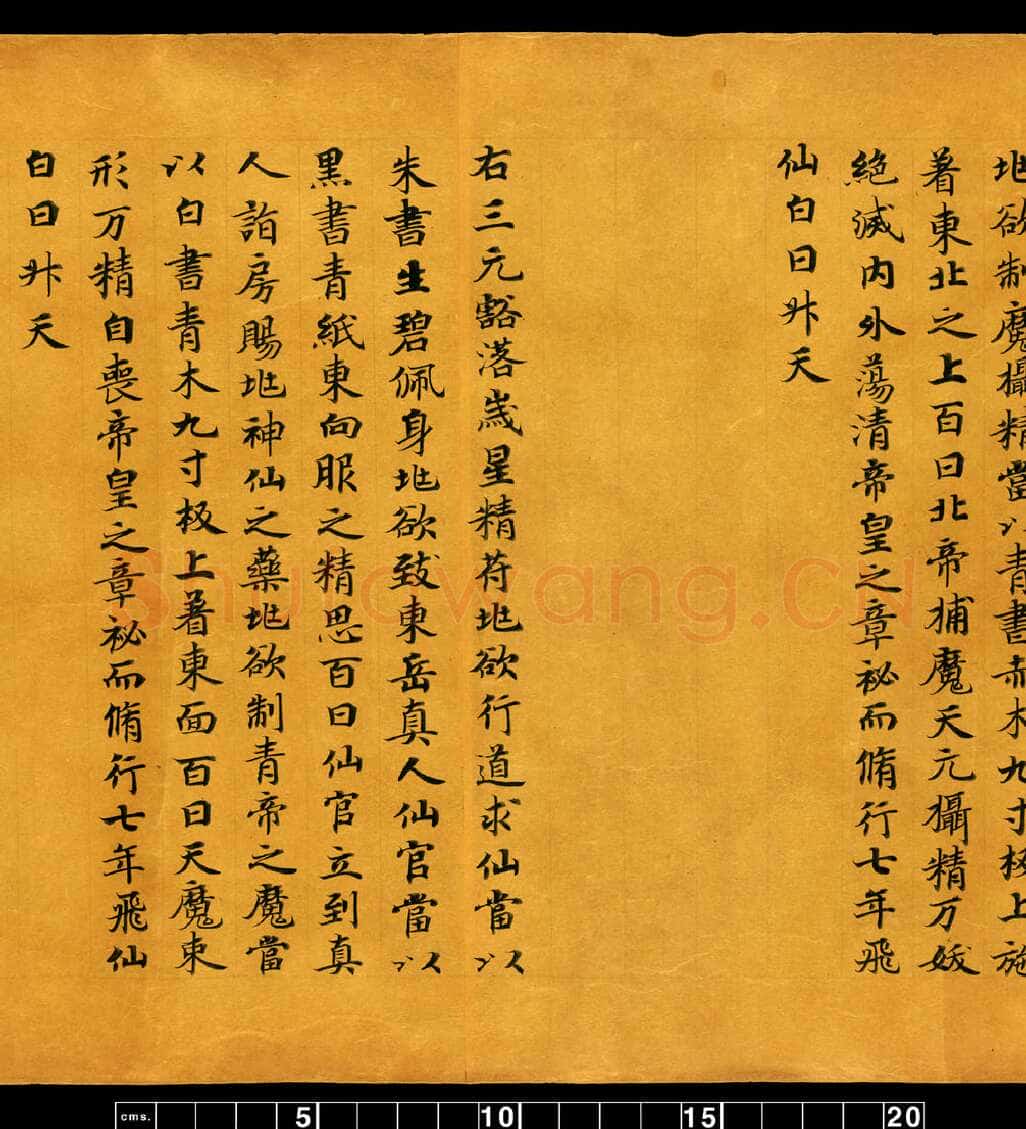 地欲制魔攝精當以青書赤木九寸板上施
著東北之上百日北帝捕魔天元攝精万妖
絕滅内外蕩清帝皇之章祕而脩行七年飛
仙白日升天
右三元豁落歲星精符地欲行道求仙當以
朱書生碧佩身地欲致東岳真人仙官當以
黑書青紙東向服之精思百日仙官立到真
人詣房賜地神仙之藥地欲制青帝之魔當
以白書青木九寸板上著東面百日天魔束
形万精自喪帝皇之章祕而脩行七年飛仙
白日升天
Shufawang.CN
cms. 5 10 15 20